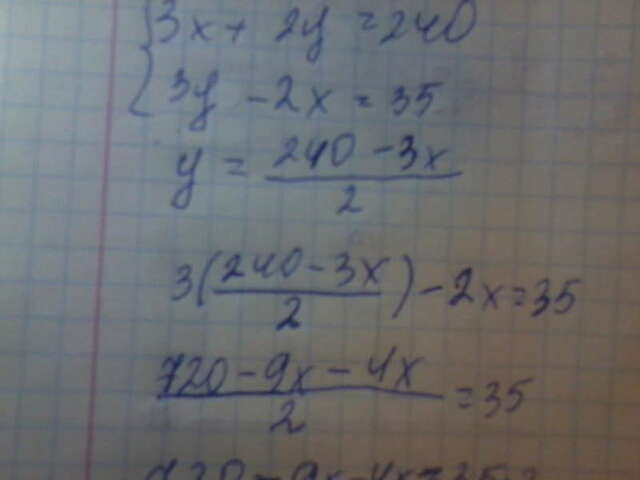 3x + 2y = 240
3y - 2x = 35
y = (240 - 3x)/2
3((240 - 3x)/2) - 2x = 35
(720 - 9x - 4x)/2 = 35
720 - 9x - 4x = 35